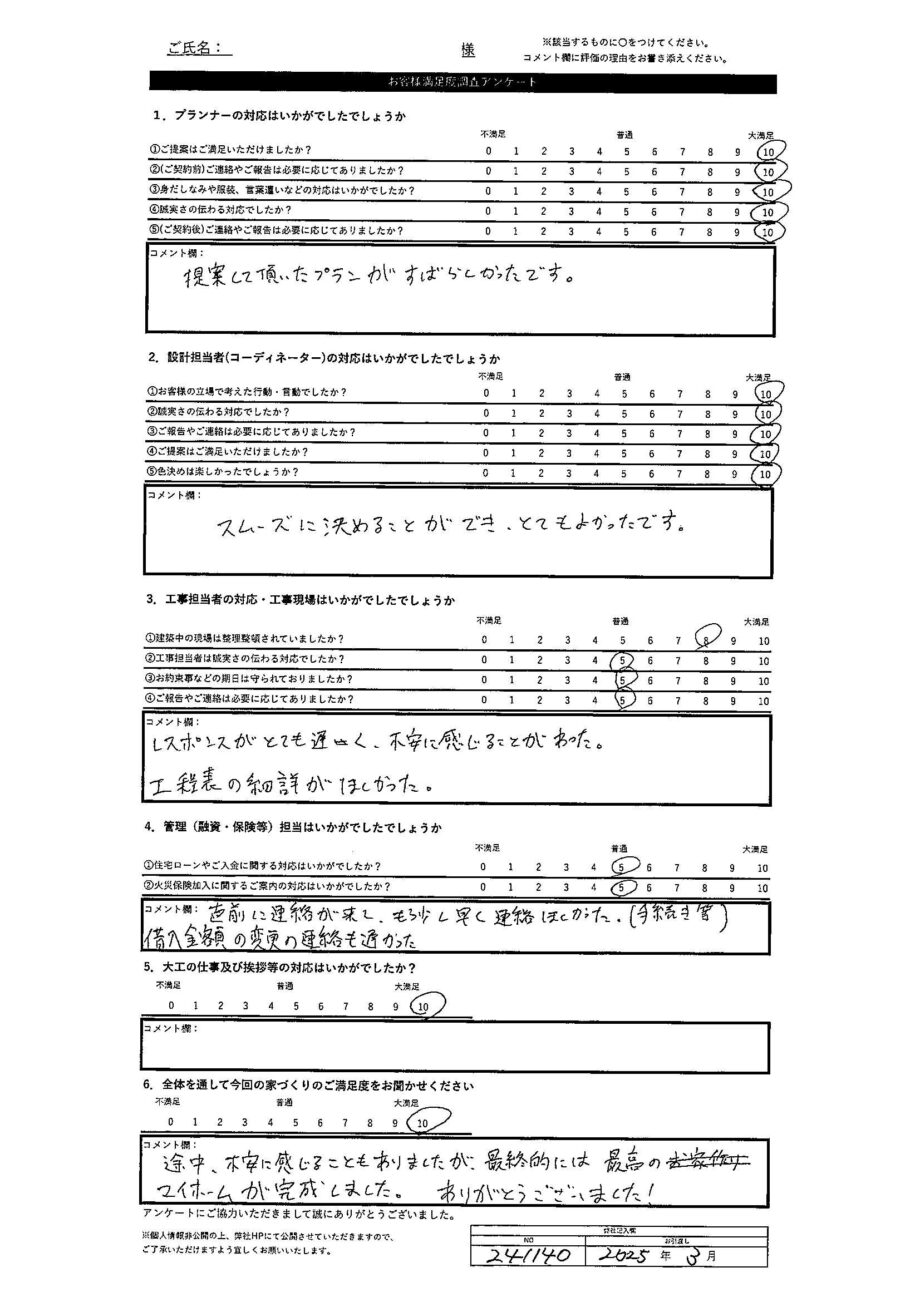 ご氏名： 様
※該当するものに〇をつけてください。
コメント欄に評価の理由をお書き添えください。
お客様満足度調査アンケート
1．プランナーの対応はいかがでしたでしょうか
不満足 普通 大満足
①ご提案はご満足いただけましたか？ 0 1 2 3 4 5 6 7 8 9 10
②(ご契約前)ご連絡やご報告は必要に応じてありましたか？ 0 1 2 3 4 5 6 7 8 9 10
③身だしなみや服装、言葉遣いなどの対応はいかがでしたか？ 0 1 2 3 4 5 6 7 8 9 10
④誠実さの伝わる対応でしたか？ 0 1 2 3 4 5 6 7 8 9 10
⑤(ご契約後)ご連絡やご報告は必要に応じてありましたか？ 0 1 2 3 4 5 6 7 8 9 10
コメント欄：
提案して頂いたプランがすばらしかったです。
2．設計担当者(コーディネーター)の対応はいかがでしたでしょうか
不満足 普通 大満足
①お客様の立場で考えた行動・言動でしたか？ 0 1 2 3 4 5 6 7 8 9 10
②誠実さの伝わる対応でしたか？ 0 1 2 3 4 5 6 7 8 9 10
③ご報告やご連絡は必要に応じてありましたか？ 0 1 2 3 4 5 6 7 8 9 10
④ご提案はご満足いただけましたか？ 0 1 2 3 4 5 6 7 8 9 10
⑤色決めは楽しかったでしょうか？ 0 1 2 3 4 5 6 7 8 9 10
コメント欄：
スムーズに決めることができ、とてもよかったです。
3．工事担当者の対応・工事現場はいかがでしたでしょうか
不満足 普通 大満足
①建築中の現場は整理整頓されていましたか？ 0 1 2 3 4 5 6 7 8 9 10
②工事担当者は誠実さの伝わる対応でしたか？ 0 1 2 3 4 5 6 7 8 9 10
③お約束事などの期日は守られておりましたか？ 0 1 2 3 4 5 6 7 8 9 10
④ご報告やご連絡は必要に応じてありましたか？ 0 1 2 3 4 5 6 7 8 9 10
コメント欄：
レスポンスがとても遅く、不安に感じることがあった。
工程表の細詳がほしかった。
4．管理（融資・保険等）担当はいかがでしたでしょうか
不満足 普通 大満足
①住宅ローンやご入金に関する対応はいかがでしたか？ 0 1 2 3 4 5 6 7 8 9 10
②火災保険加入に関するご案内の対応はいかがでしたか？ 0 1 2 3 4 5 6 7 8 9 10
コメント欄： 直前に連絡が来て、もう少し早く連絡ほしかった。(手続き等)
借入金額の変更の連絡も遅かった
5．大工の仕事及び挨拶等の対応はいかがでしたか？
不満足 普通 大満足
0 1 2 3 4 5 6 7 8 9 10
コメント欄：
6．全体を通して今回の家づくりのご満足度をお聞かせください
不満足 普通 大満足
0 1 2 3 4 5 6 7 8 9 10
コメント欄：
途中、不安に感じることもありましたが、最終的には 最高の
マイホームが完成しました。 ありがとうございました！
アンケートにご協力いただきまして誠にありがとうございました。
※個人情報非公開の上、弊社HPにて公開させていただきますので、
ご了承いただけますよう宜しくお願いいたします。
弊社記入欄
NO お引渡し
241140 2025 年 3 月